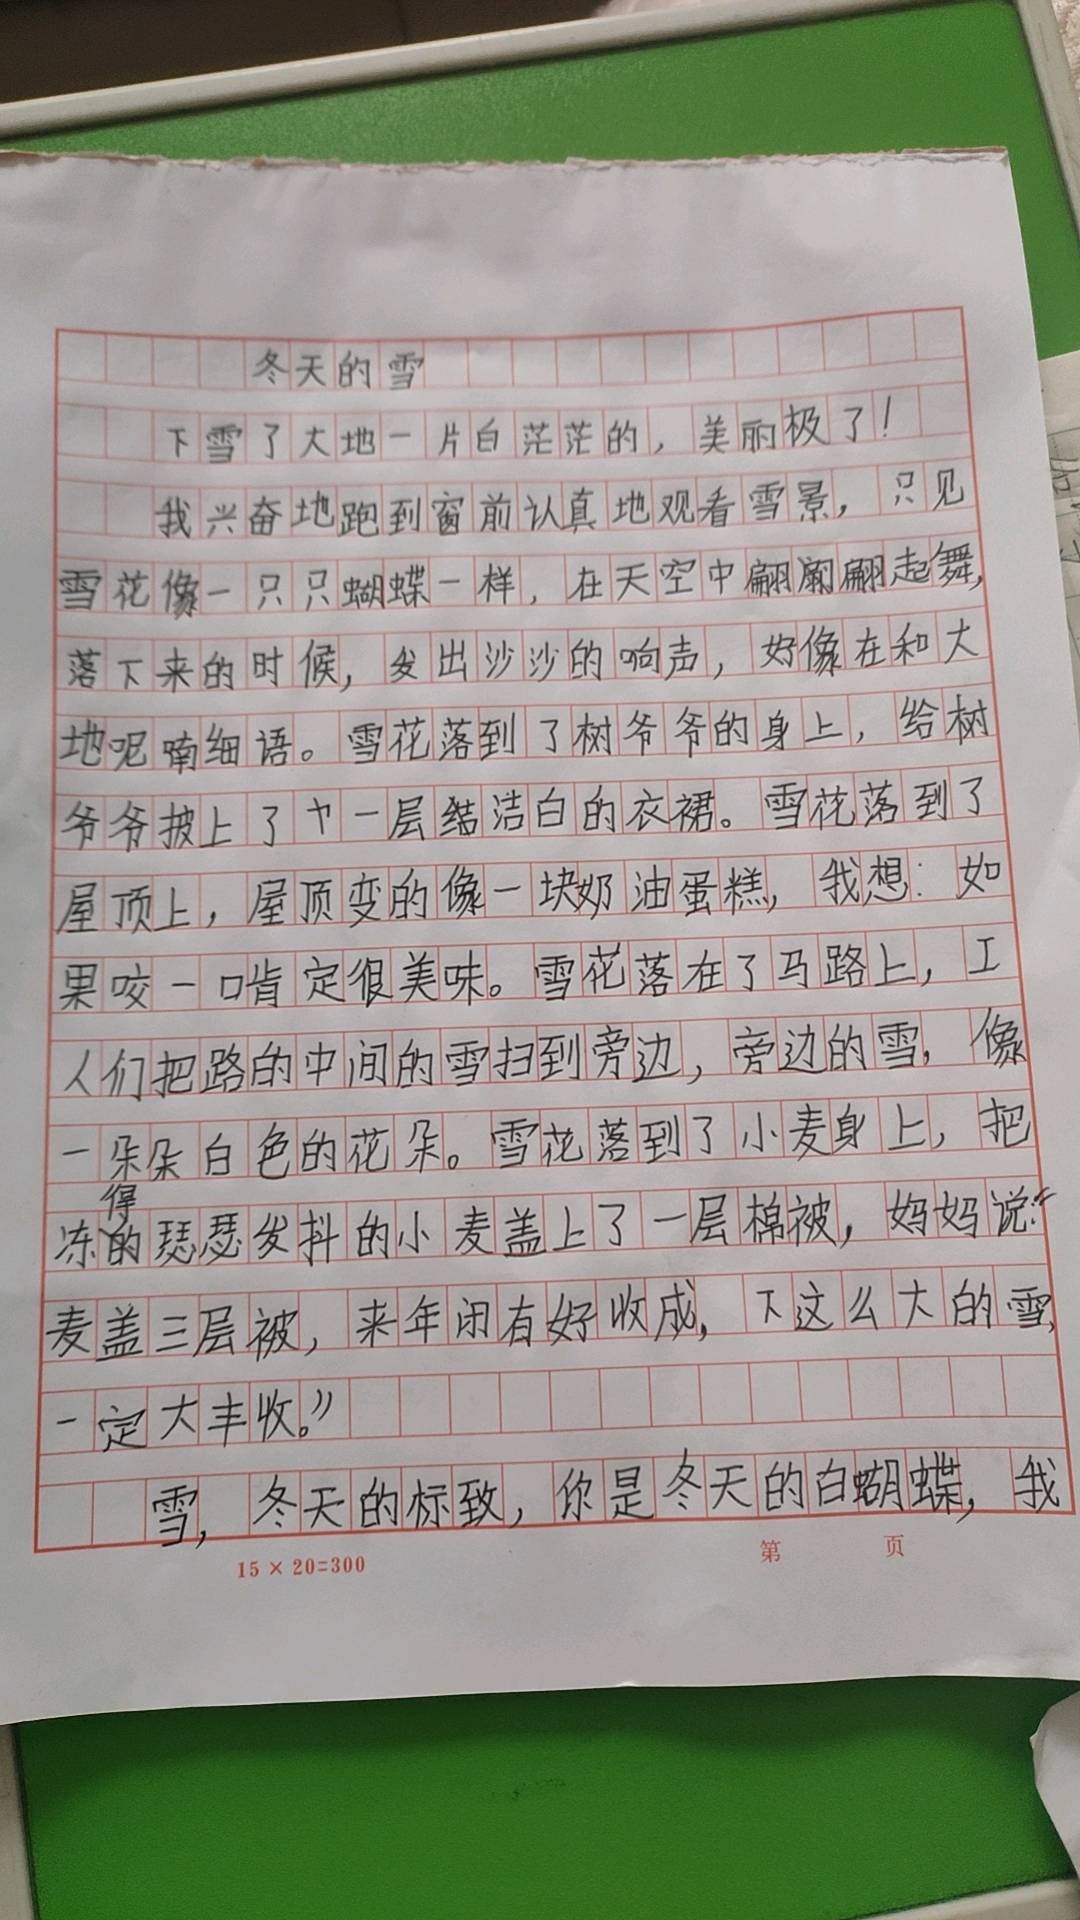 冬天的雪
下雪了大地一片白茫茫的，美丽极了！
我兴奋地跑到窗前认真地观看雪景，只见
雪花像一只只蝴蝶一样，在天空中翩翩起舞，
落下来的时候，发出沙沙的响声，好像在和大
地呢喃细语。雪花落到了树爷爷的身上，给树
爷爷披上了一层洁白的衣裙。雪花落到了
屋顶上，屋顶变的像一块奶油蛋糕，我想：如
果咬一口肯定很美味。雪花落在了马路上，工
人们把路的中间的雪扫到旁边，旁边的雪，像
一朵朵白色的花朵。雪花落到了小麦身上，把
冻得瑟瑟发抖的小麦盖上了一层棉被，妈妈说：“
麦盖三层被，来年闭有好收成，下这么大的雪，
一定大丰收。”
雪，冬天的标致，你是冬天的白蝴蝶，我
15×20=300
第 页